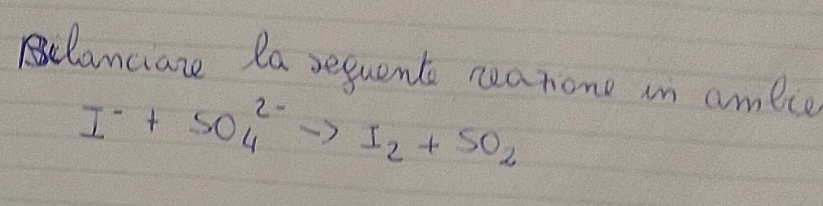 Bilanciare la seguente reazione in ambie
I⁻ + SO₄²⁻ → I₂ + SO₂